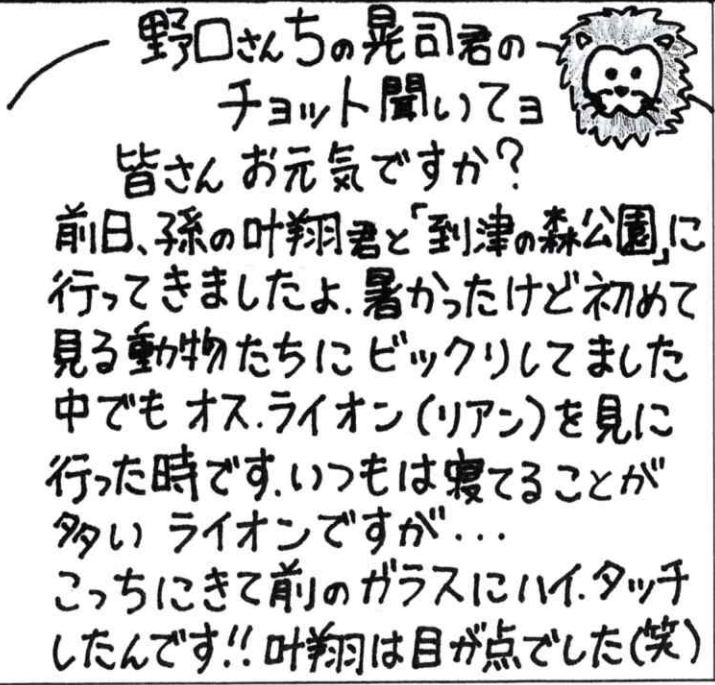 野口さんちの晃司君の
チョット聞いてョ
皆さん お元気ですか?
前日、孫の叶翔君と「到津の森公園」に
行ってきましたよ.暑かったけど初めて
見る動物たちにビックリしてました
中でも オス.ライオン(リアン)を見に
行った時です.いつもは寝てることが
多い ライオンですが...
こっちにきて前のガラスにハイ.タッチ
したんです!!叶翔は目が点でした(笑)